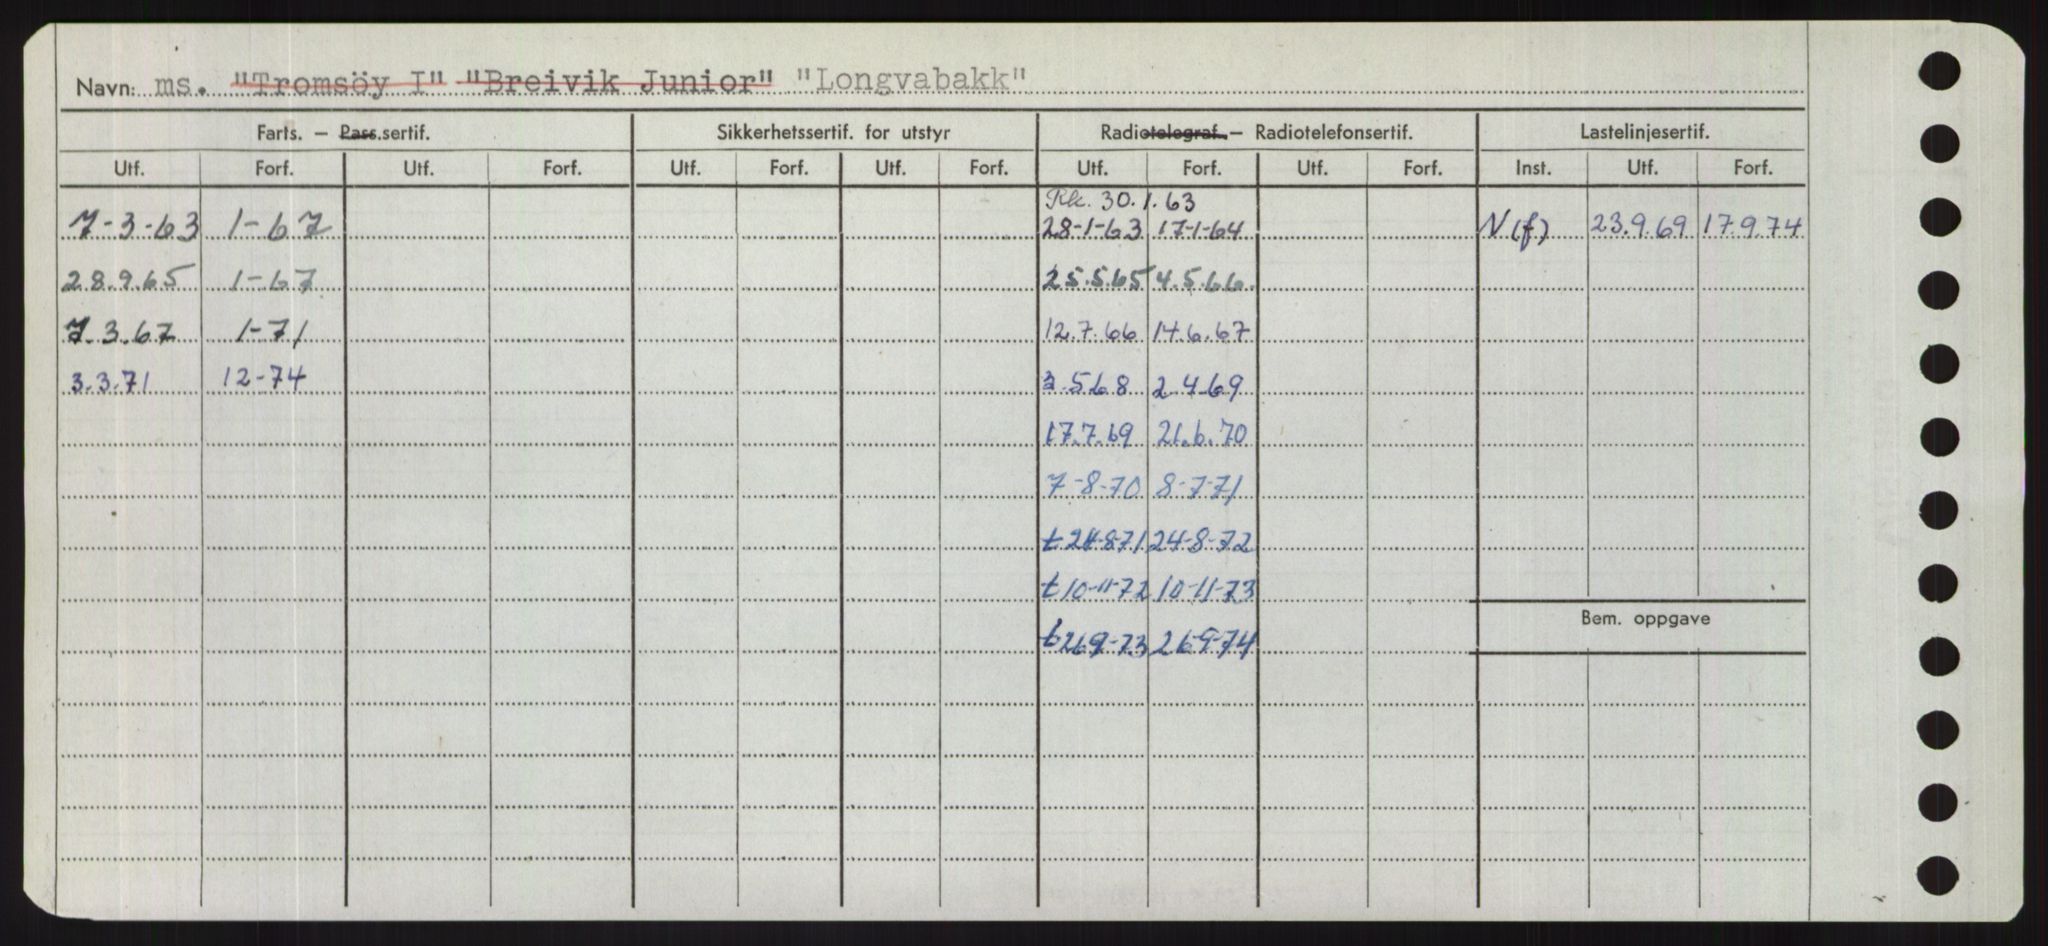 Navn: ms. "Tromsöy I" "Breivik Junior" "Longvabakk"
Farts. — Pass.sertif. Sikkerhetssertif. for utstyr Radiotelegraf. — Radiotelefonsertif. Lastelinjesertif.
Utf. Forf. Utf. Forf. Utf. Forf. Utf. Forf. Utf. Forf. Utf. Forf. Inst. Utf. Forf.
Rk. 30.1.63
7-3-63 1-67 28-1-63 17-1-64 N(f) 23.9.69 17.9.74
28.9.65 1-67 25.5.65 4.5.66.
7.3.67 1-71 12.7.66 14.6.67
3.3.71 12-74 3.568 2.4.69
17.7.69 21.6.70
7-8-70 8-7-71
t 24-8-71 24-8-72
t 10-11-72 10-11-73
Bem. oppgave
t 269-73 26-9-74